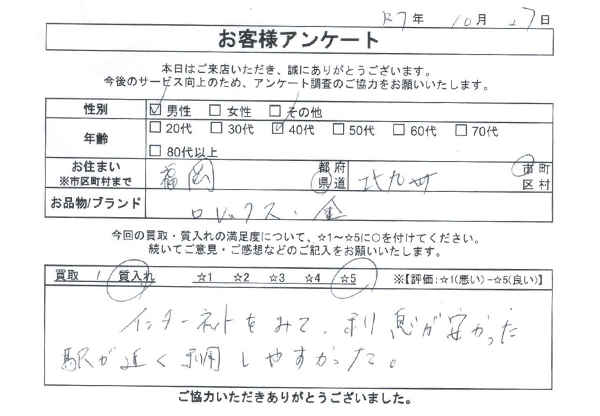 R7年 10月 27日
お客様アンケート
本日はご来店いただき、誠にありがとうございます。
今後のサービス向上のため、アンケート調査のご協力をお願いいたします。
性別 ☑男性 □女性 □その他
年齢 □20代 □30代 ☑40代 □50代 □60代 □70代
□80代以上
お住まい ※市区町村まで 福岡 都府県道 北九州 市町区村
お品物/ブランド ロレックス・金
今回の買取・質入れの満足度について、☆1～☆5に○を付けてください。
続いてご意見・ご感想などのご記入をお願いいたします。
買取 / 質入れ ☆1 ☆2 ☆3 ☆4 ☆5 ※【評価:☆1(悪い)−☆5(良い)】
インターネットをみて、利息が安かった
駅が近く利用しやすかった。
ご協力いただきありがとうございました。